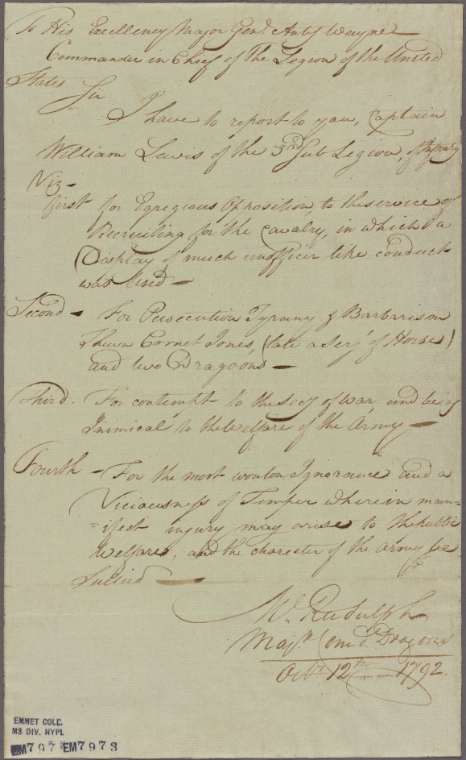 To His Excellency Major Genl. Anty Wayne
Commander in Chief of the Legion of the United
States
Sir
I have to report to you, Captain
William Lewis of the 3rd Sub Legion,
Viz—
first for Egregious Opposition to the service of
Recruiting for the Cavalry, in which a
Display of much unofficer like conduct
was Used —
Second — For Persecution Tyrany & Barbarism
Shewn Cornet Jones, (late a Serjt of Horse)
and two Dragoons —
Third. For contempt to the Secy of War and being
Inimical to the Welfare of the Army —
Fourth — For the most wonton Ignorance and a
Viciousness of Temper wherein man-
=ifest injury may arise to the Public
Welfare, and the charecter of the Army be
Sullied —
Ml. Rudulph
Majr. Comdt Dragoons
Octr. 12th 1792
EMMET COLL.
MS DIV. NYPL
EM7973